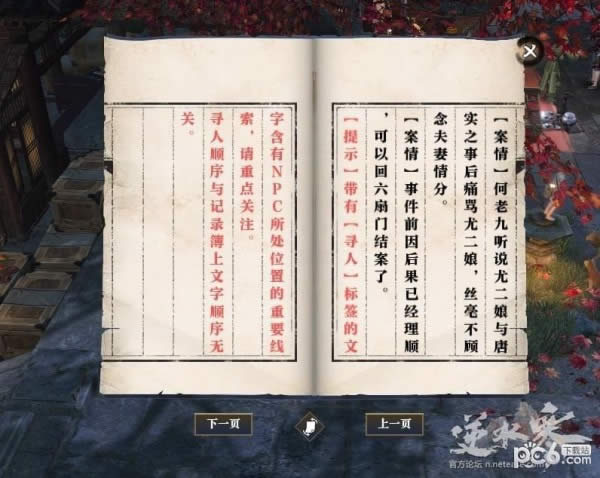 【案情】何老九听说尤二娘与唐
实之事后痛骂尤二娘，丝毫不顾
念夫妻情分。
【案情】事件前因后果已经理顺
，可以回六扇门结案了。
【提示】带有【寻人】标签的文
字含有NPC所处位置的重要线
索，请重点关注。
寻人顺序与记录簿上文字顺序无
关。
下一页
上一页
逆水寒
官方论坛 n.netease.com
pc6.com
下载站